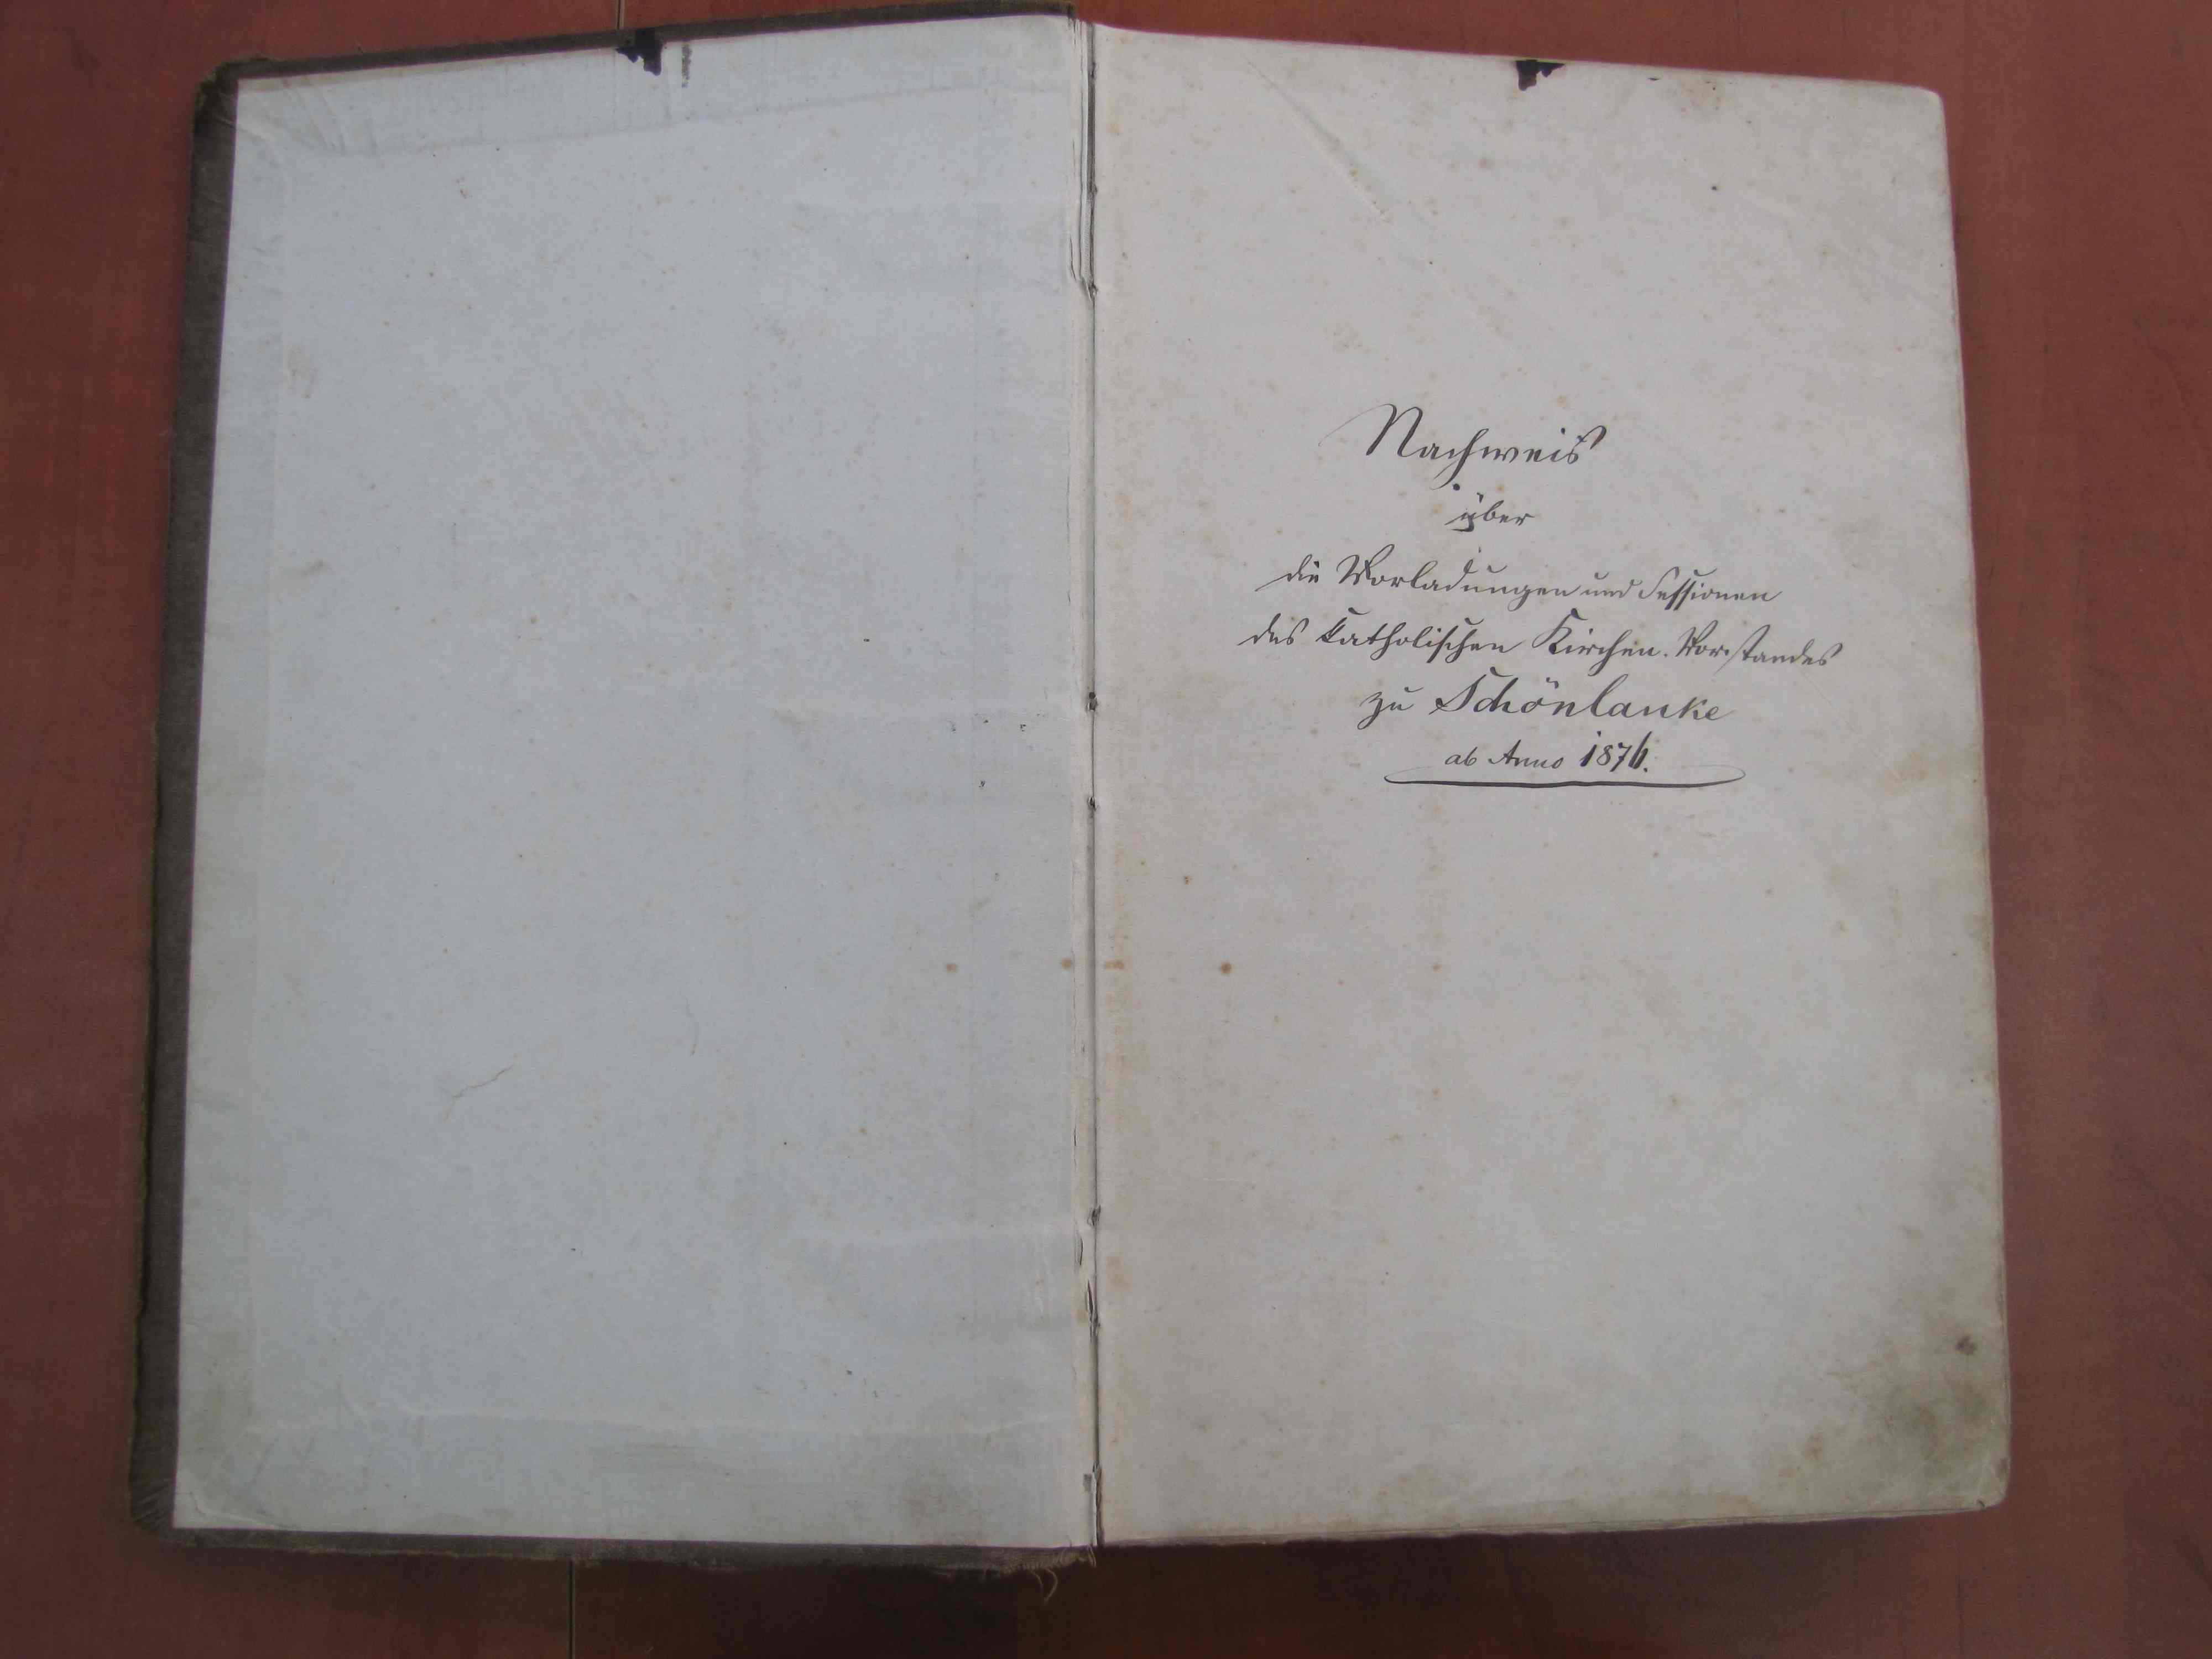 Nachweis
über
die Vorladungen und Sessionen
des Katholischen Kirchen-Vorstandes
zu Schönlanke
ab Anno 1876.